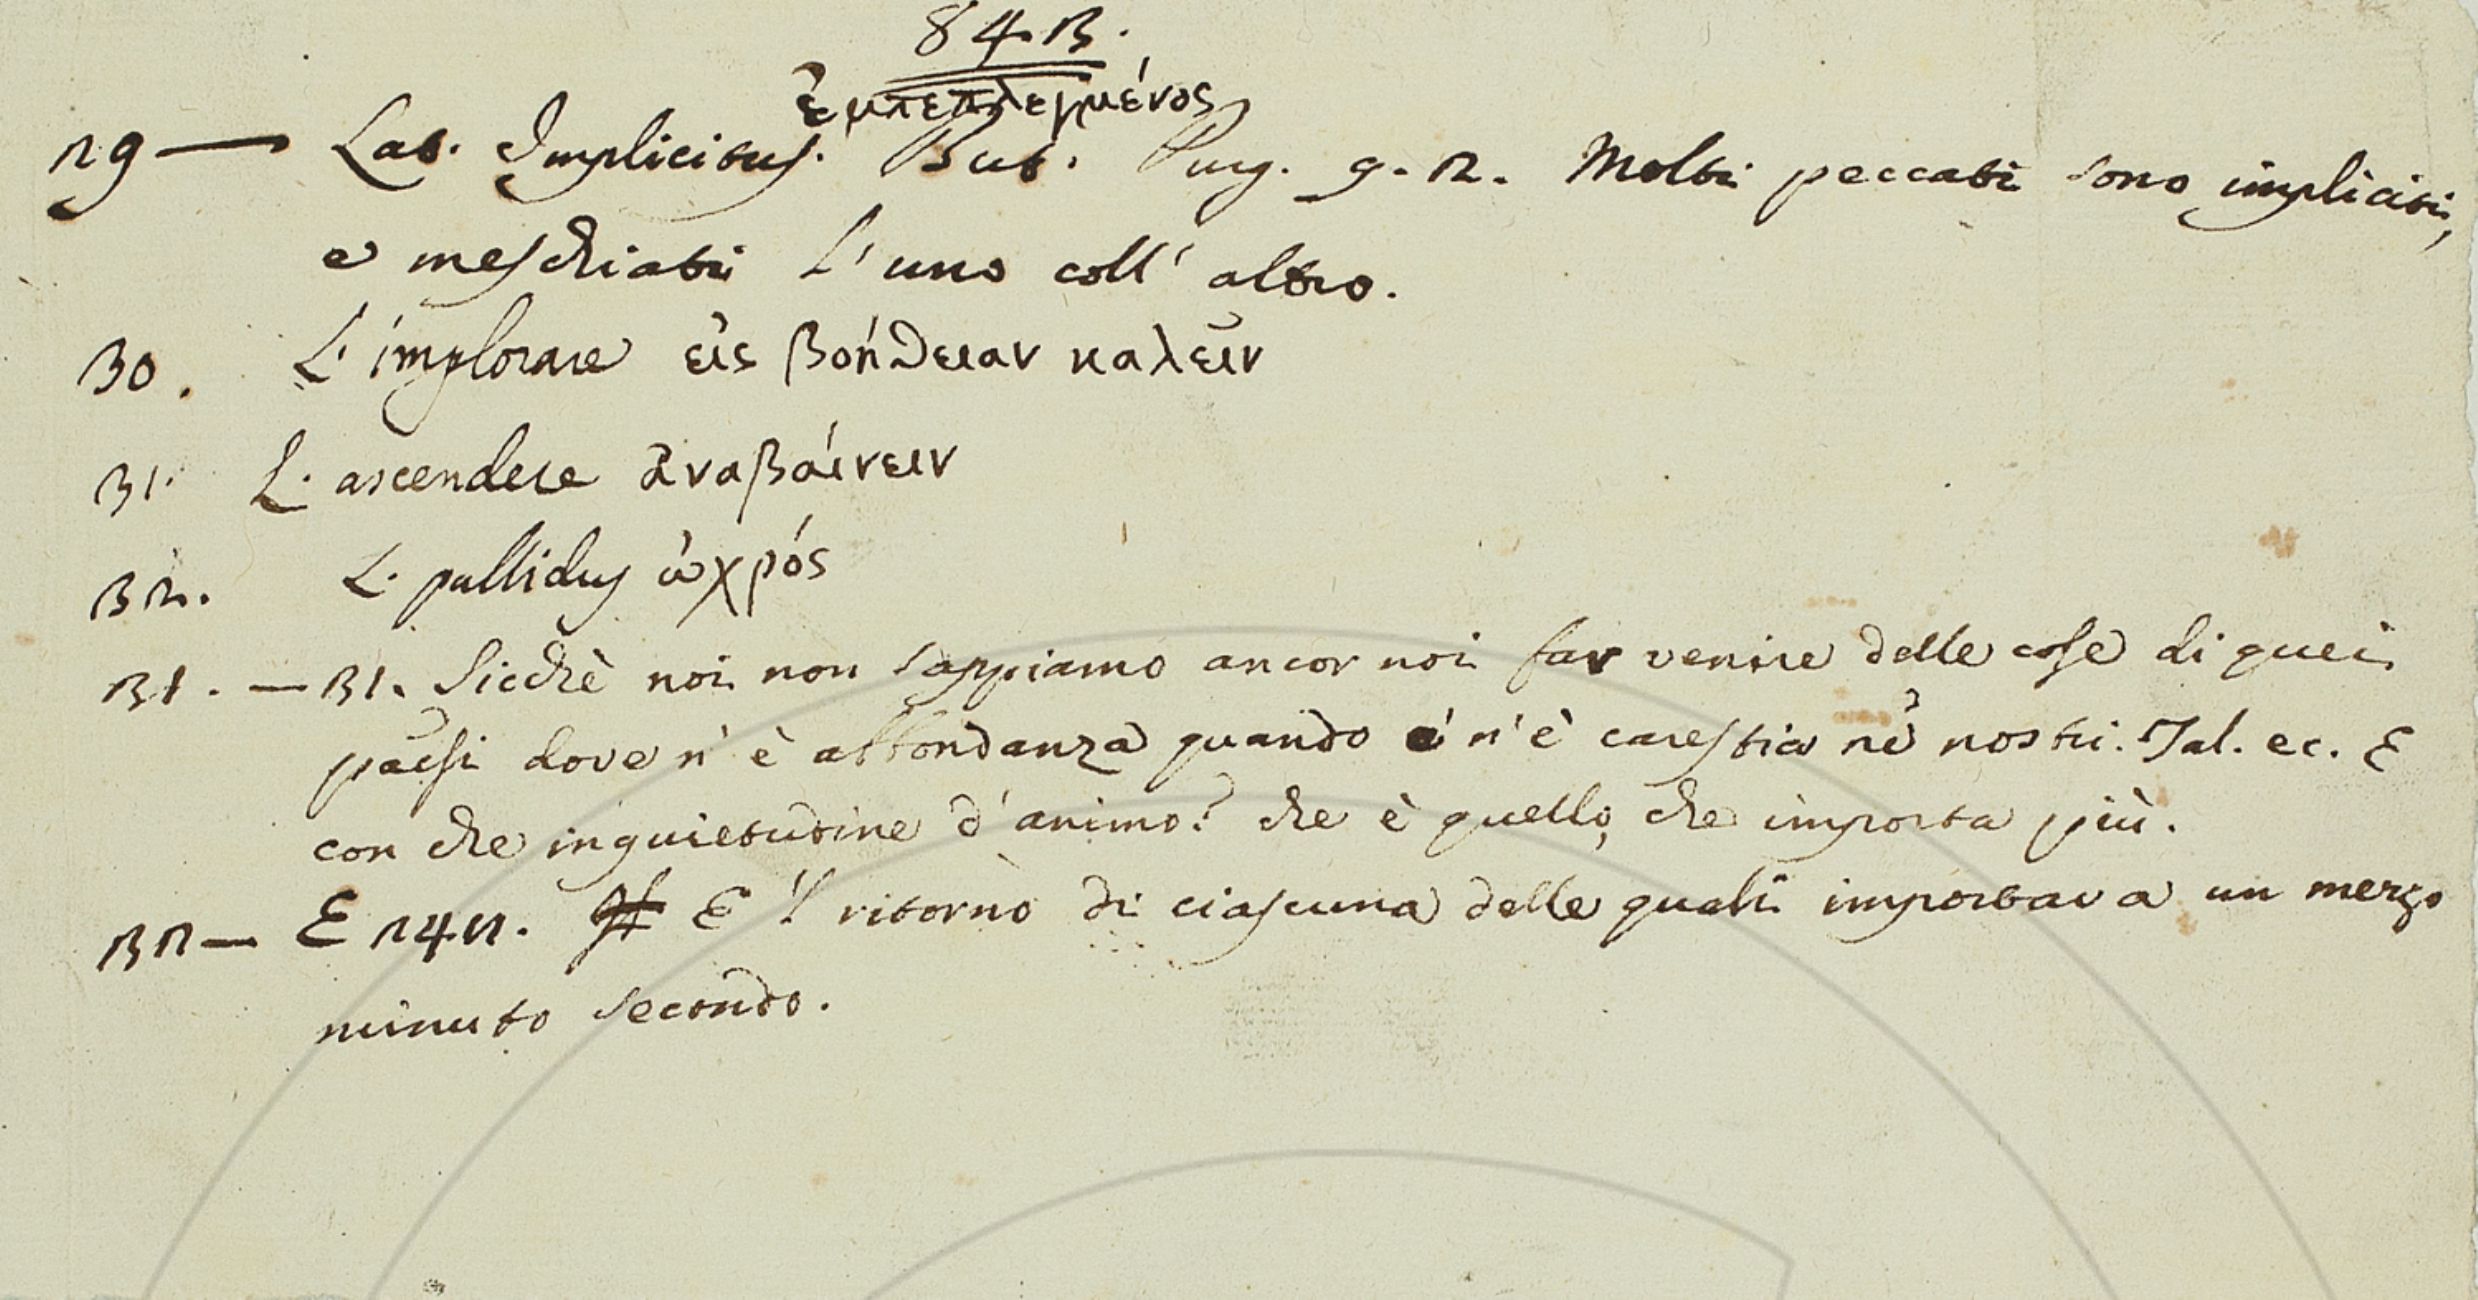 843.
ἐμπεπλεγμένος
29 — Lat. Implicitus. But. Purg. 9. 2. Molti peccati sono impliciti,
e meschiati l'uno coll'altro.
30. L. implorare εἰς βοήθειαν καλεῖν
31. L. ascendere ἀναβαίνειν
32. L. pallidus ὠχρός
31. — 31. Sicchè noi non sappiamo ancor noi far venire delle cose di quei
paesi dove n'è abbondanza quando n'è carestia ne' nostri. Tal. ec. E
con che inquietudine d'animo? che è quello, che importa più.
32 — E 242. E 'l ritorno di ciascuna delle quali importava un mezzo
minuto secondo.